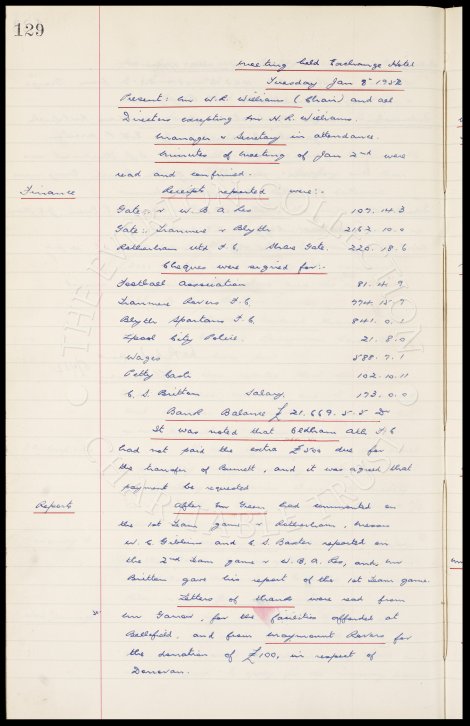 129
Meeting held Exchange Hotel
Tuesday Jan 8th 1952
Present: Mr W.R. Williams (Chair) and all
Directors excepting Mr H.R. Williams.
Manager & Secretary in attendance.
Minutes of meeting of Jan 2nd were
read and confirmed.
Finance
Receipts reported were:-
Gate: v W.B.A. Res 107. 14. 3
Gate: Tranmere v Blyth 2162. 10. 0
Rotherham Utd F.C. Share Gate. 226. 18. 6
Cheques were signed for:-
Football Association 81. 4. 9
Tranmere Rovers F.C. 994. 15. 7
Blyth Spartans F.C. 841. 0. 1
L'pool City Police. 21. 8. 0
Wages 588. 7. 1
Petty Cash 102. 10. 11
C.S. Britton Salary. 173. 0. 0
Bank Balance £21,669. 5. 5 Dr
It was noted that Oldham Ath. F.C
had not paid the extra £500 due for
the transfer of Burnett, and it was agreed that
payment be requested
Reports
After Mr Green had commented on
the 1st Team game v Rotherham, Messrs
W.C. Gibbins and C.S. Baxter reported on
the 2nd Team game v W.B.A. Res, and Mr
Britton gave his report of the 1st Team game.
Letters of thanks were read from
Mr , for the facilities afforded at
Bellefield, and from Maymount Rovers for
the donation of £100, in respect of
Donovan.
THE EVERTON COLLECTION
CHARITABLE TRUST